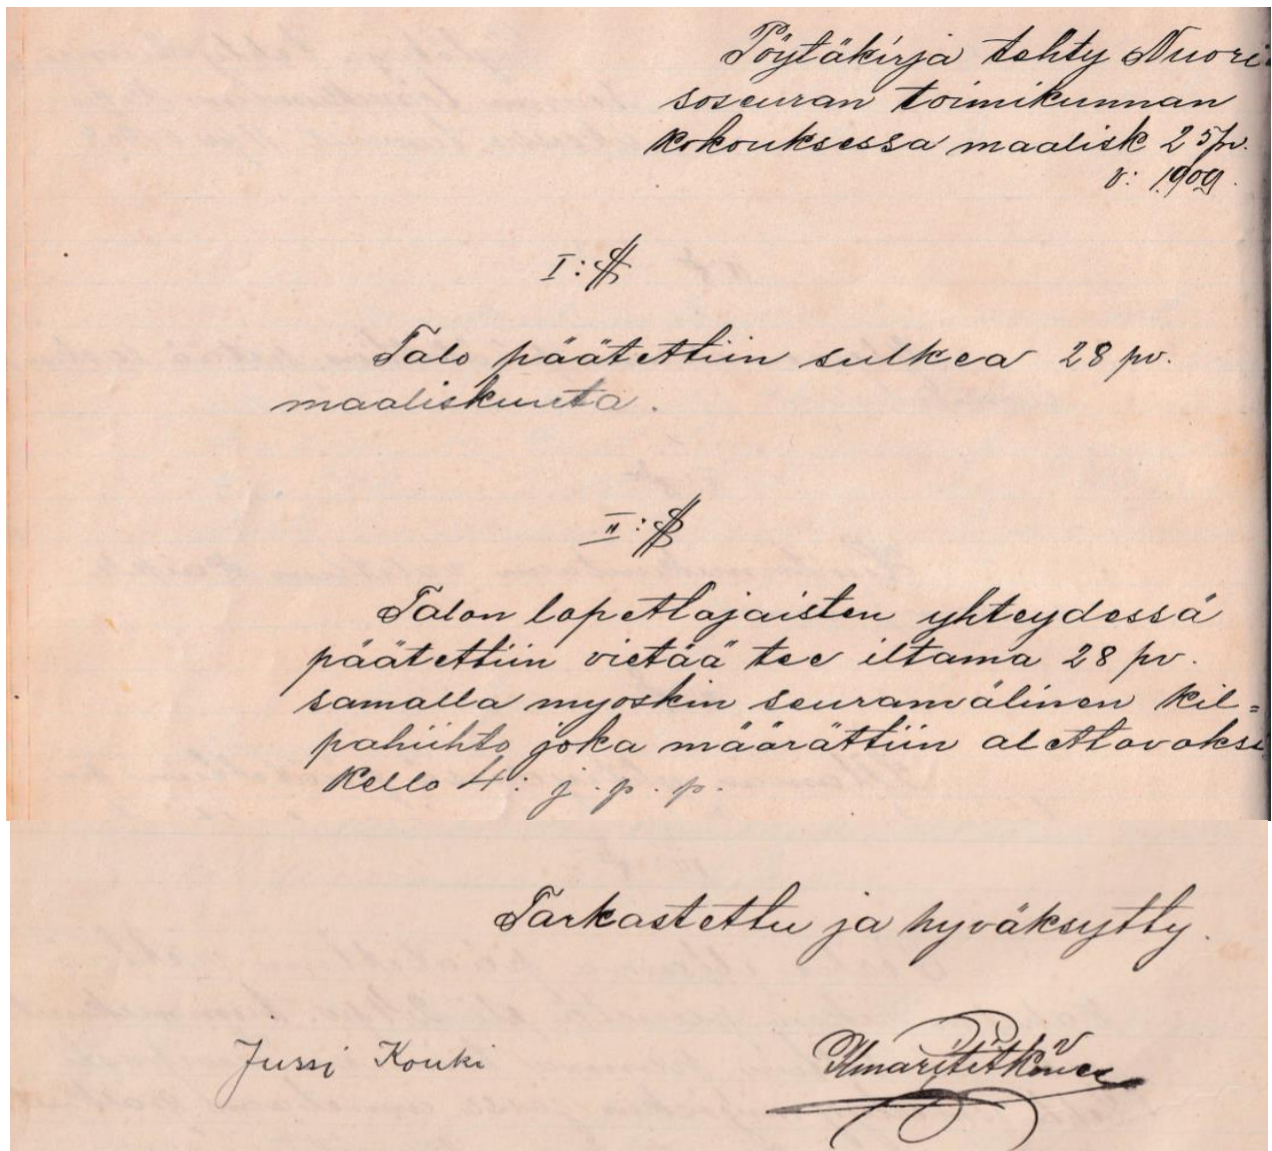 Pöytäkirja tehty Nuori-
soseuran toimikunnan
kokouksessa maalisk 25 pv.
v: 1909.
I:§
Talo päätettiin sulkea 28 pv.
maaliskuuta.
II:§
Talon lopettajaisten yhteydessä
päätettiin viettää tee iltama 28 pv.
samalla myoskin seuranvälinen kil=
pahiihto joka määrättiin alettavaksi
kello 4: j. p. p.
Tarkastettu ja hyväksytty.
Jussi Kouki
Ilmari